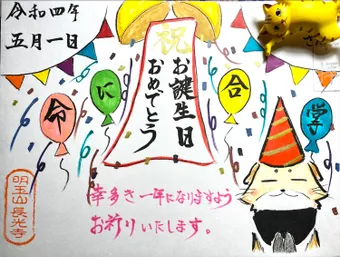 令和四年
五月一日
祝
お誕生日
おめでとう
命に合掌
幸多き一年になりますよう
お祈りいたします。
明王山長光寺